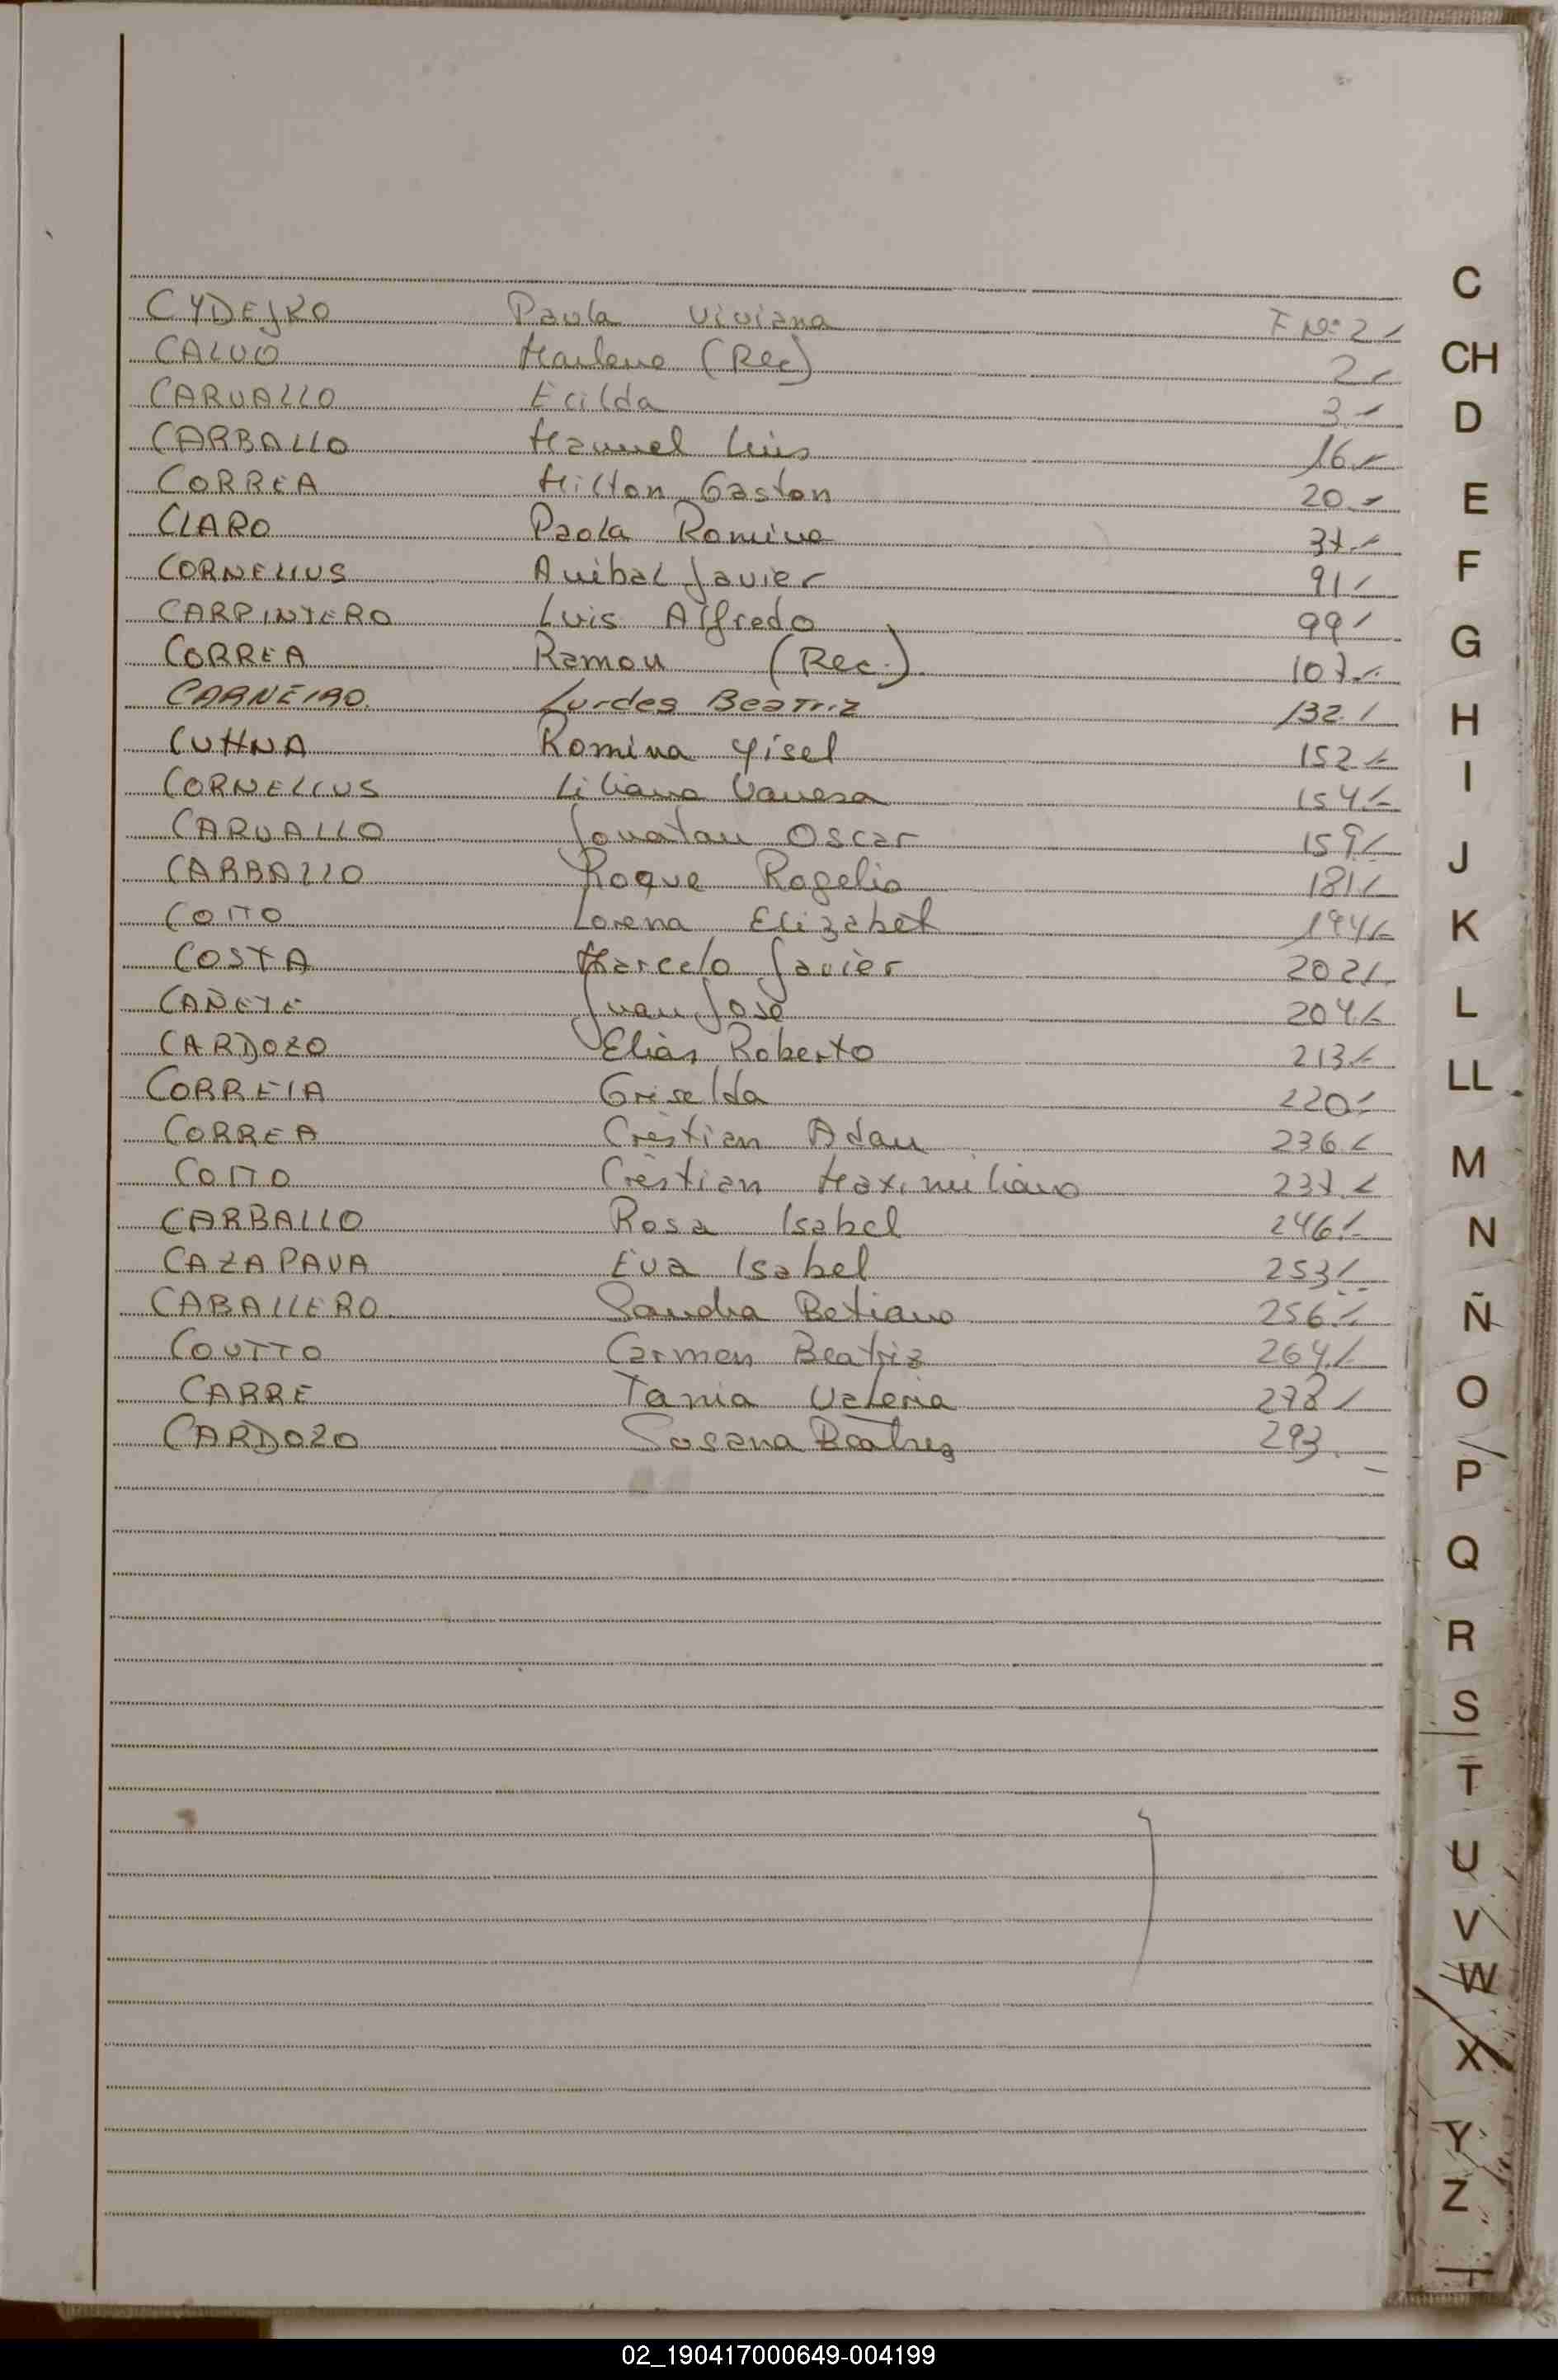 CYDEJKO Paola Viviana F Nº 2
CALVO Marlene (Rec) 2
CARVALLO Ecilda 3
CARBALLO Manuel Luis 16
CORREA Milton Gaston 20
CLARO Paola Romina 37
CORNELIUS Anibal Javier 91
CARPINTERO Luis Alfredo 99
CORREA Ramon (Rec.) 107
CARNEIRO Lurdes Beatriz 132
CUHNA Romina Yisel 152
CORNELIUS Liliana Vanesa 154
CARVALLO Jonatan Oscar 159
CARBALLO Roque Rogelio 181
COITO Lorena Elizabet 194
COSTA Marcelo Javier 202
CAÑETE Juan José 204
CARDOZO Elias Roberto 213
CORREIA Griselda 220
CORREA Cristian Adan 236
COITO Cristian Maximiliano 237
CARBALLO Rosa Isabel 246
CAZAPAVA Eva Isabel 253
CABALLERO Sandra Betiana 256
COUTTO Carmen Beatriz 264
CARRE Tania Valeria 278
CARDOZO Susana Beatriz 293
C
CH
D
E
F
G
H
I
J
K
L
LL
M
N
Ñ
O
P
Q
R
S
T
U
V
W
X
Y
Z
02_190417000649-004199